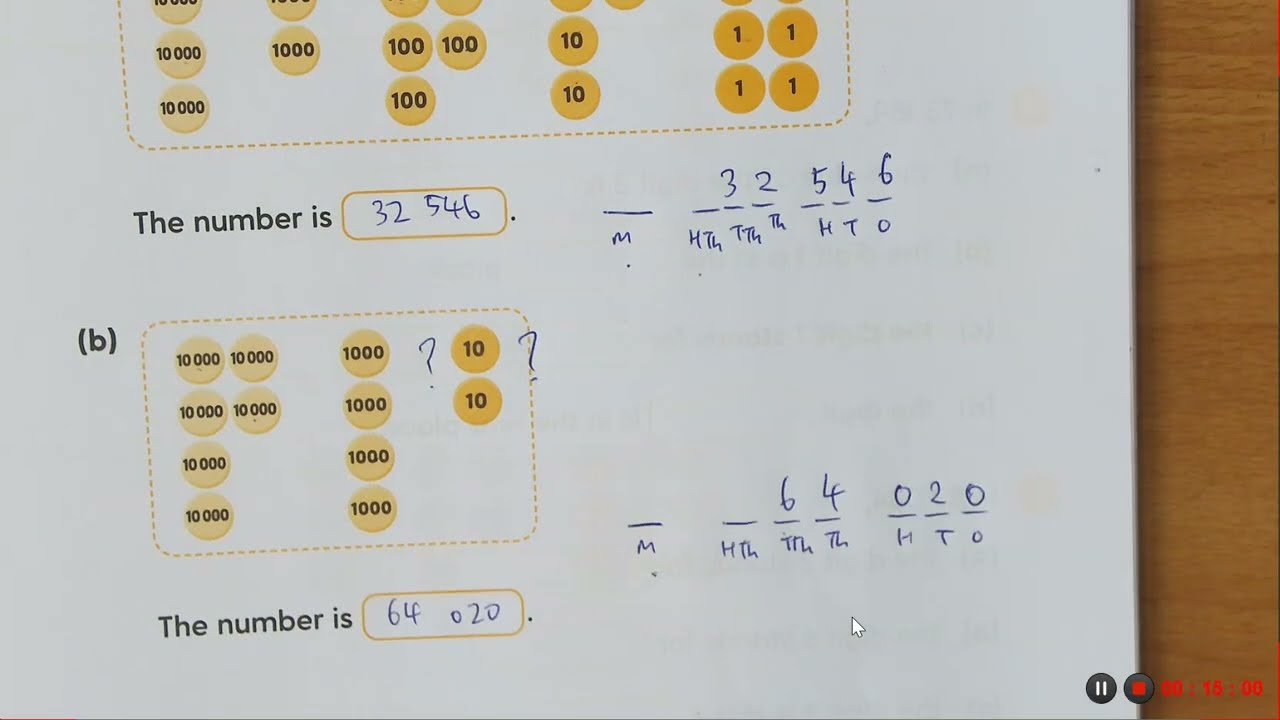 10 000 1000 100 100 10 1 1
10 000 100 10 1 1
The number is 32 546 .
3 2 5 4 6
M HTh TTh Th H T O
(b)
10 000 10 000 1000 ? 10 ?
10 000 10 000 1000 10
10 000 1000
10 000 1000
6 4 0 2 0
M HTh TTh Th H T O
The number is 64 020 .
00 : 15 : 00